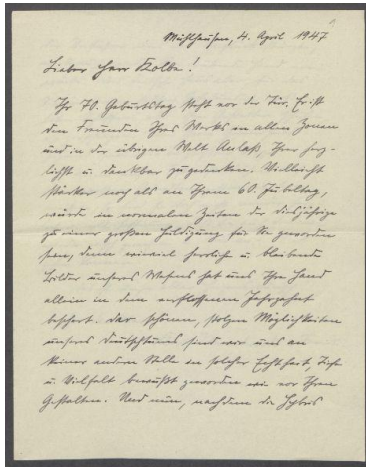 Mühlhausen, 4. April 1947
Lieber Herr Kolbe!
Ihr 70. Geburtstag steht vor der Tür. Er ist
den Freunden Ihres Werks in allen Zonen
und in der übrigen Welt Anlaß, Ihrer herz-
lichst u. dankbar zu gedenken. Vielleicht
stärker noch als an Ihrem 60. Jubeltag,
würde in normalen Zeiten der diesjährige
zu einer großen Huldigung für Sie geworden
sein, denn wieviel herrlich u. bleibende
Bilder unseres Wesens hat uns Ihre Hand
allein in dem verflossenen Jahrzehnt
beschert. Der schönen, stolzen Möglichkeiten
unseres Deutschtums sind wir uns an
keiner anderen Stelle in solcher Echtheit
u. Vielfalt bewußt geworden wie vor Ihren
Gestalten. Und nun, nachdem die Hybris